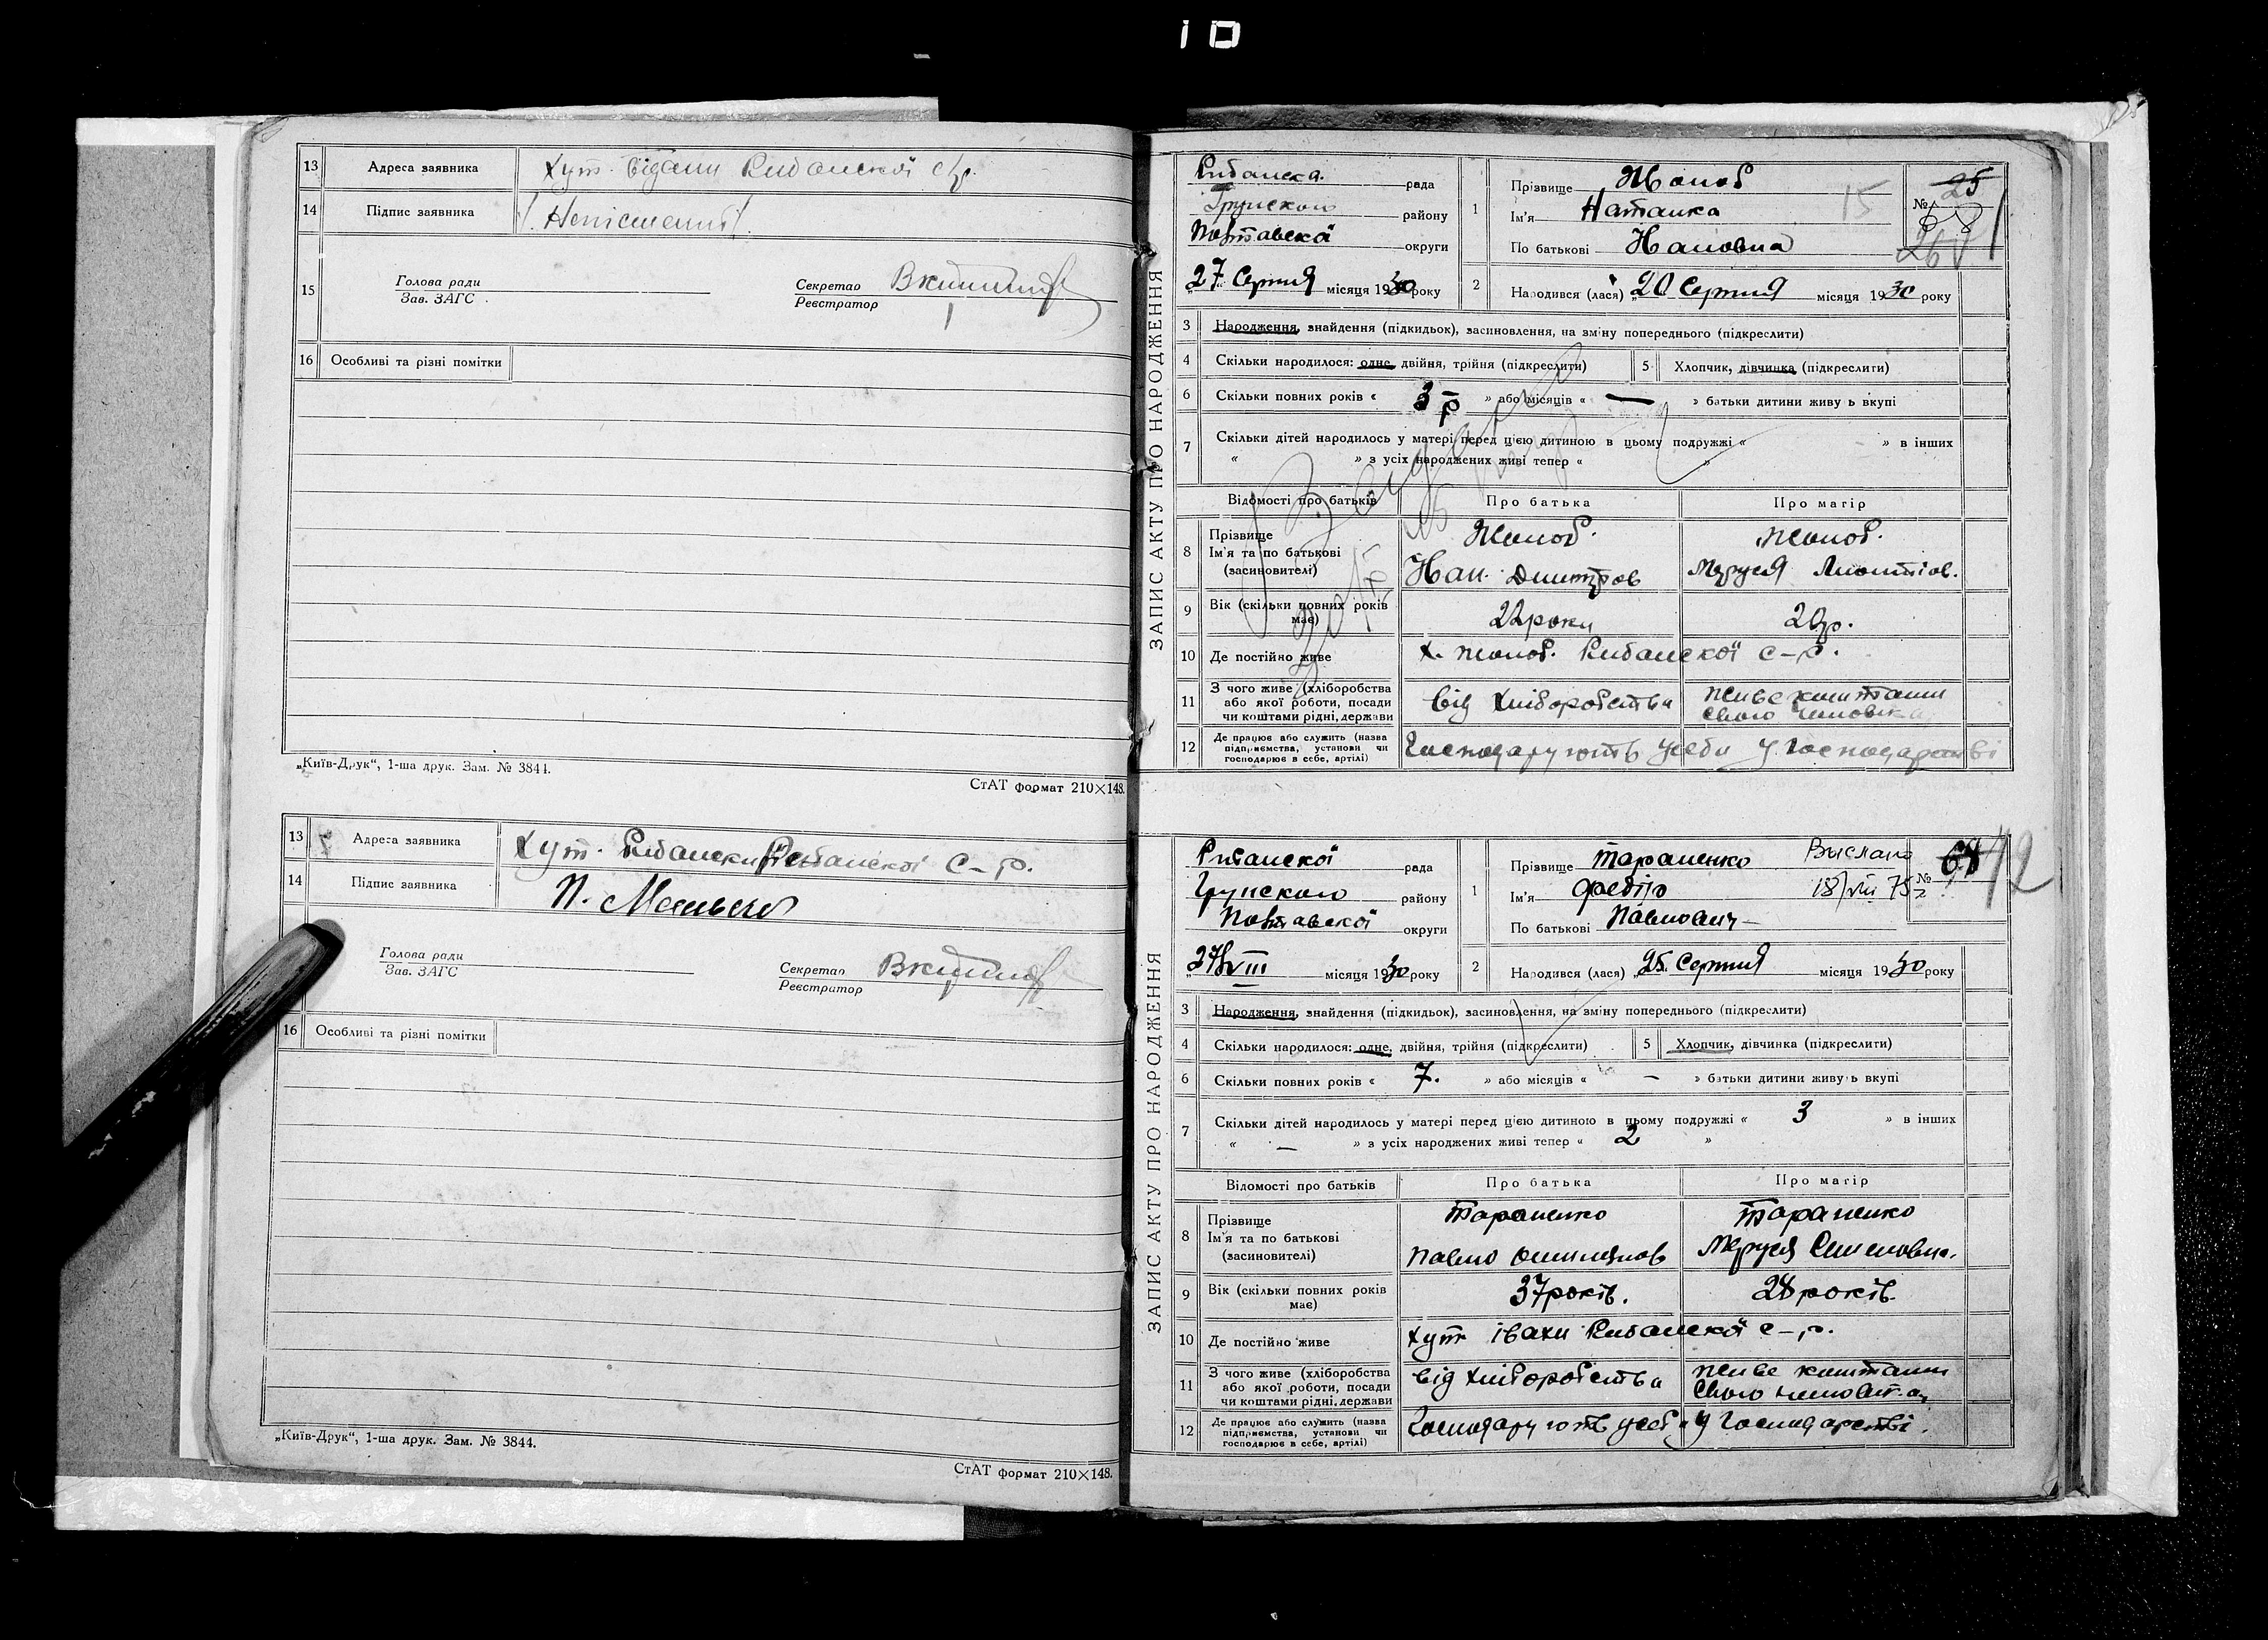 10
13 Адреса заявника Хут. Рибанскої с/р.
14 Підпис заявника
15 Голова ради Зав. ЗАГС Секретар Реєстратор
16 Особливі та різні помітки
„Київ-Друк“, 1-ша друк. Зам. № 3844.
СтАТ формат 210×148.
13 Адреса заявника Хут. Рибанскої с-р.
14 Підпис заявника П.
Голова ради Зав. ЗАГС Секретар Реєстратор
16 Особливі та різні помітки
„Київ-Друк“, 1-ша друк. Зам. № 3844.
СтАТ формат 210×148.
ЗАПИС АКТУ ПРО НАРОДЖЕННЯ
Рибанска рада
Грунского району
Полтавскої округи
27 Серпня місяця 1930 року
1 Прізвище Жолоб
Ім'я Наталка
По батькові
№ 25
15
2 Народився (лася) 20 Серпня місяця 1930 року
3 Народження, знайдення (підкидьок), засиновлення, на зміну попереднього (підкреслити)
4 Скільки народилося: одне, двійня, трійня (підкреслити) 5 Хлопчик, дівчинка (підкреслити)
6 Скільки повних років « 3 р » або місяців « — » батьки дитини живуть вкупі
7 Скільки дітей народилось у матері перед цією дитиною в цьому подружжі « » в інших
« » з усіх народжених живі тепер « »
Відомості про батьків Про батька Про матір
8 Прізвище Жолоб. Жолоб.
Ім'я та по батькові Дмитров Маруся
(засиновителі)
9 Вік (скільки повних років має) 22 роки 20 р.
10 Де постійно живе х. Жолоб. Рибанскої с-р.
11 З чого живе (хліборобства або якої роботи, посади чи коштами рідні, держави від хліборобства живе коштами свого чоловіка
12 Де працює або служить (назва підприємства, установи чи господарює в себе, артілі) Господарують у себе у господарстві
ЗАПИС АКТУ ПРО НАРОДЖЕННЯ
Рибанскої рада
Грунского району
Полтавскої округи
27/VIII місяця 1930 року
1 Прізвище Тараненко
Ім'я
По батькові Павлович
Выслано
18/VIII 75
№ 68
42
2 Народився (лася) 25 Серпня місяця 1930 року
3 Народження, знайдення (підкидьок), засиновлення, на зміну попереднього (підкреслити)
4 Скільки народилося: одне, двійня, трійня (підкреслити) 5 Хлопчик, дівчинка (підкреслити)
6 Скільки повних років « 7. » або місяців « — » батьки дитини живуть вкупі
7 Скільки дітей народилось у матері перед цією дитиною в цьому подружжі « 3 » в інших
« — » з усіх народжених живі тепер « 2 »
Відомості про батьків Про батька Про матір
8 Прізвище Тараненко Тараненко
Ім'я та по батькові Павло Маруся Семеновна.
(засиновителі)
9 Вік (скільки повних років має) 37 років. 28 років
10 Де постійно живе хут. Івахи Рибанскої с-р.
11 З чого живе (хліборобства або якої роботи, посади чи коштами рідні, держави від хліборобства живе коштами свого чоловіка
12 Де працює або служить (назва підприємства, установи чи господарює в себе, артілі) Господарують у себе у господарстві.